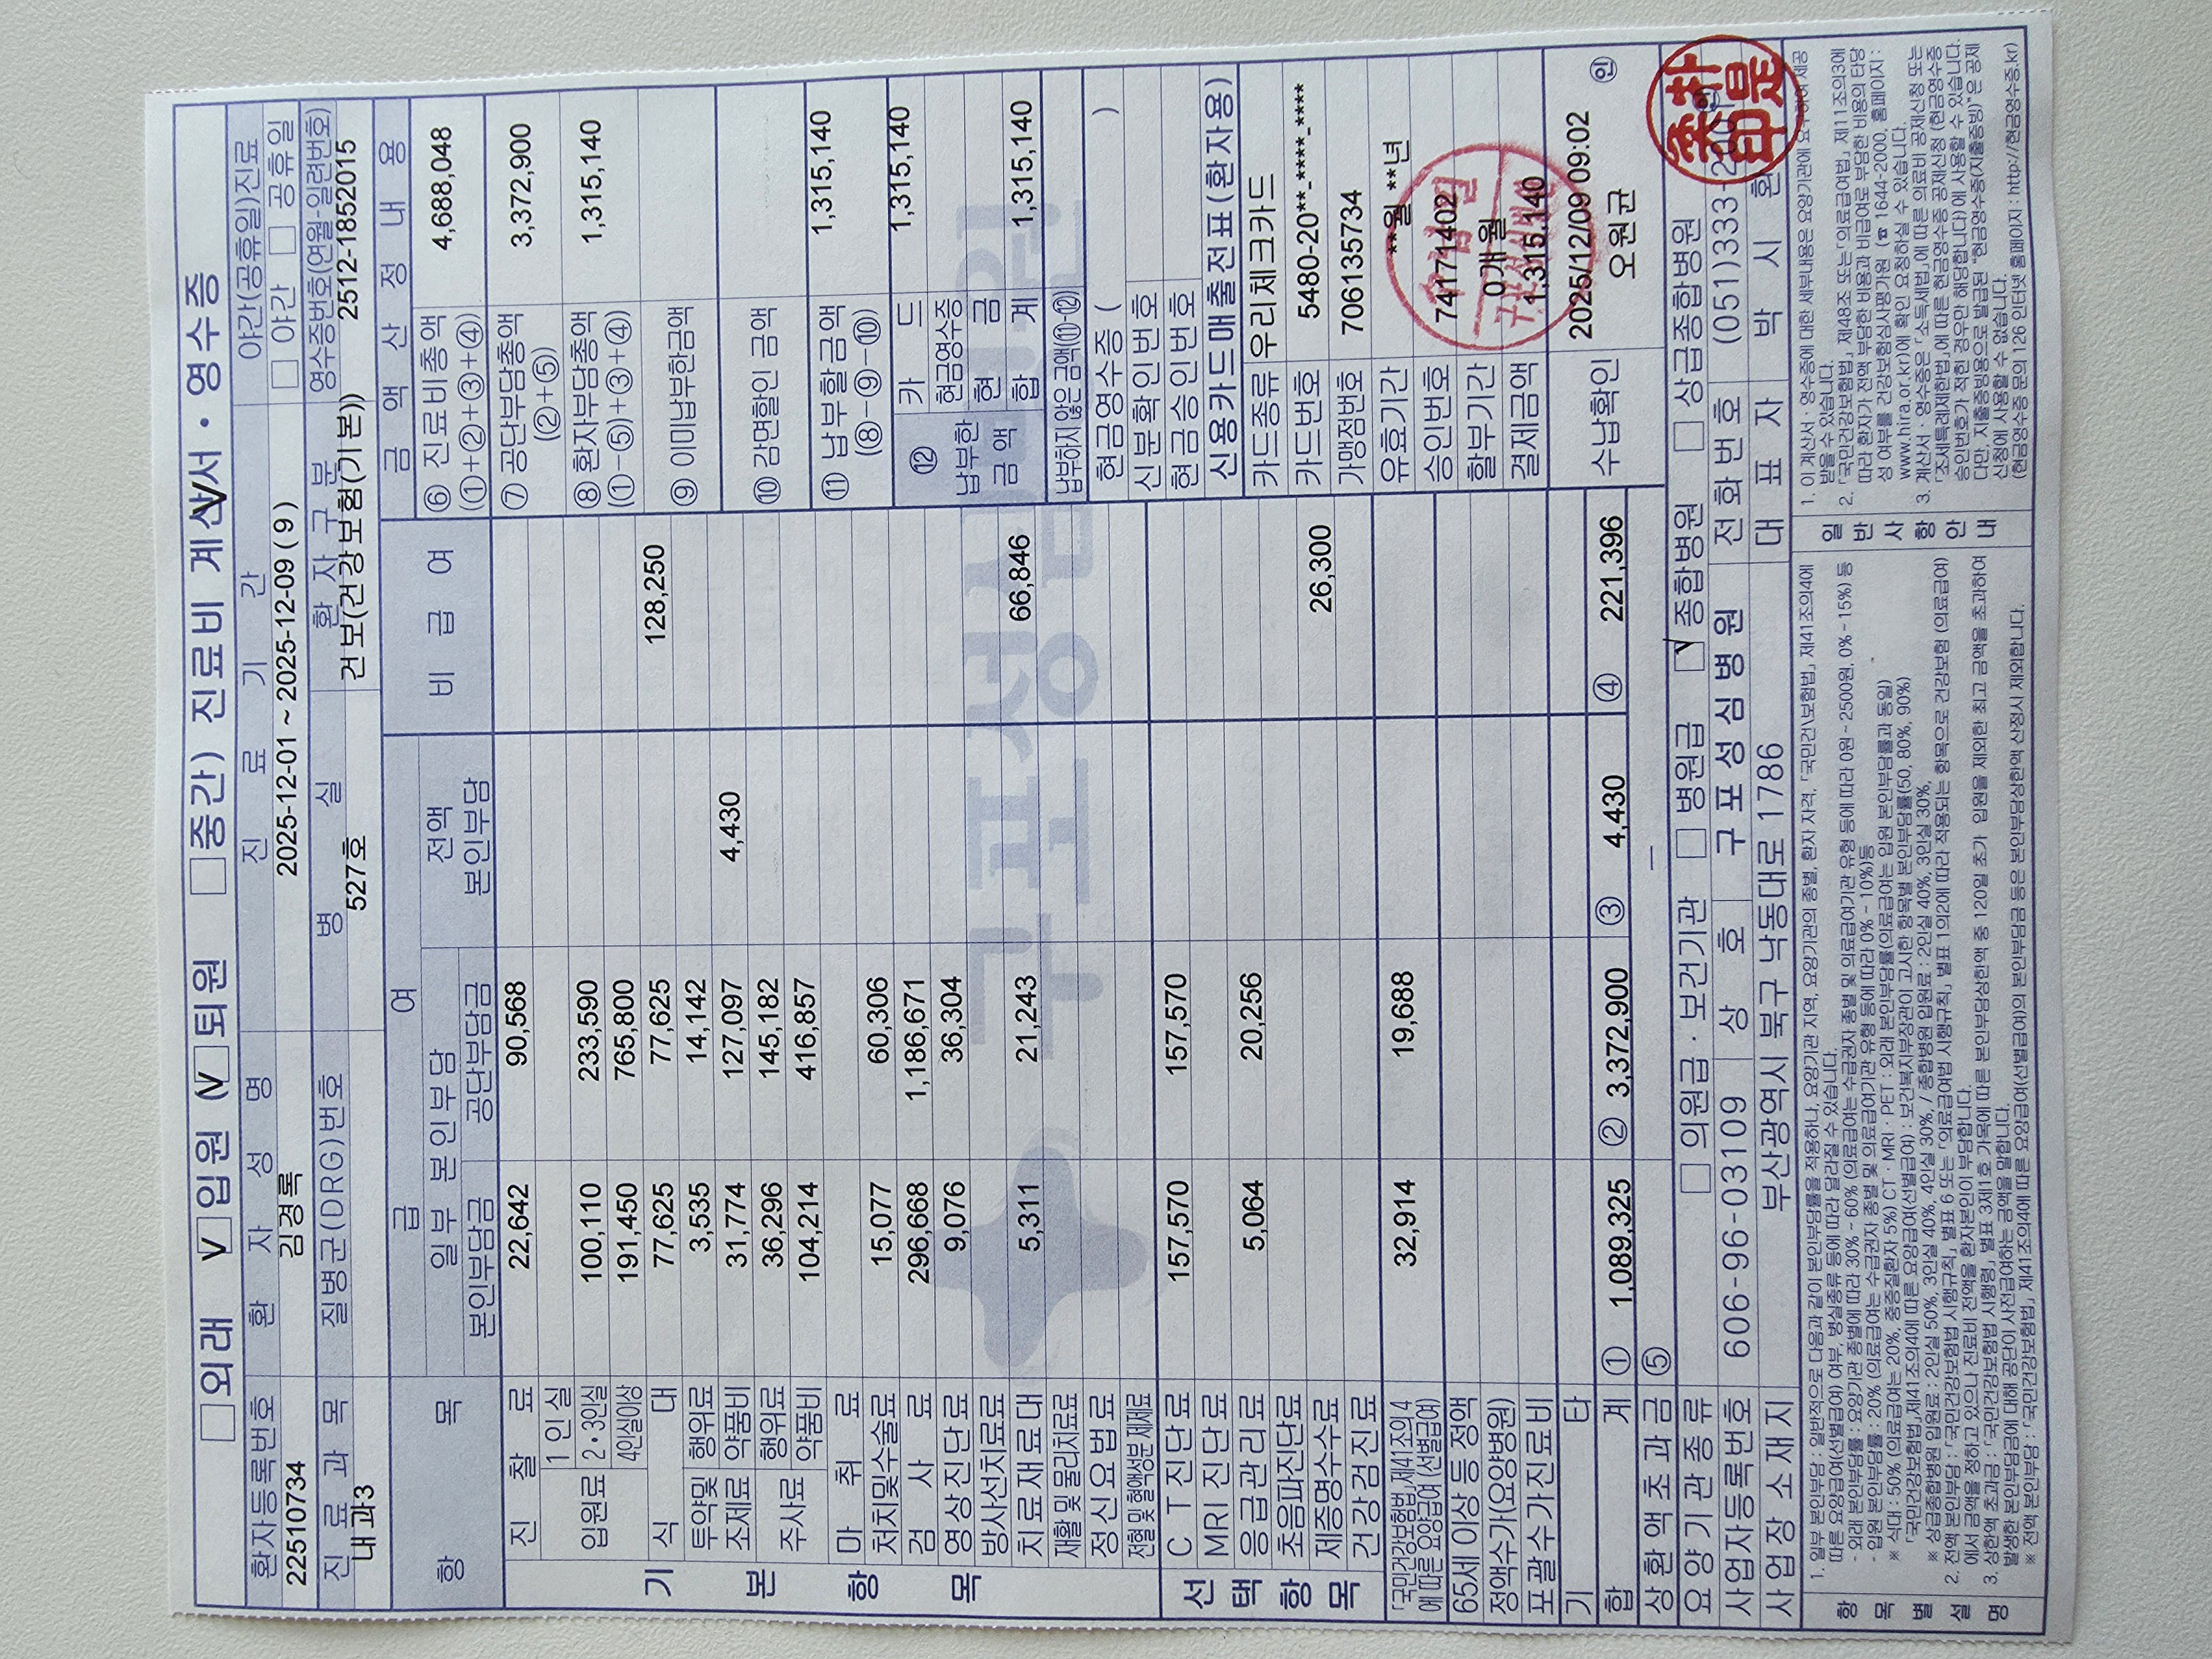 □ 외래 ☑ 입원 (☑ 퇴원 □ 중간) 진료비 계산서 · 영수증
환자등록번호 환 자 성 명 진 료 기 간 야간(공휴일)진료
22510734 김경록 2025-12-01 ~ 2025-12-09 ( 9 ) □ 야간 □ 공휴일
진 료 과 목 질병군(DRG)번호 병 실 환 자 구 분 영수증번호(연월-일련번호)
내과3 527호 건보(건강보험(기본)) 2512-1852015
항 목 급 여 비 급 여 금 액 산 정 내 용
일부 본인부담 전액 본인부담
본인부담금 공단부담금
기 본 항 목
진 찰 료 22,642 90,568
입원료 1 인 실
2·3인실 100,110 233,590
4인실이상 191,450 765,800
식 대 77,625 77,625 128,250
투약및 조제료 행위료 3,535 14,142
약품비 31,774 127,097 4,430
주사료 행위료 36,296 145,182
약품비 104,214 416,857
마 취 료
처치및수술료 15,077 60,306
검 사 료 296,668 1,186,671
영상진단료 9,076 36,304
방사선치료료
치료재료대 5,311 21,243 66,846
재활 및 물리치료료
정신요법료
전혈 및 혈액성분 제제료
선 택 항 목
C T 진단료 157,570 157,570
MRI 진단료
응급관리료 5,064 20,256
초음파진단료
제증명수수료 26,300
건강검진료
「국민건강보험법」제41조의 4
에 따른 요양급여 (선별급여) 32,914 19,688
65세 이상 등 정액
정액수가(요양병원)
포괄수가진료비
기 타
합 계 ① 1,089,325 ② 3,372,900 ③ 4,430 ④ 221,396
상한액초과금 ⑤ —
⑥ 진료비총액 4,688,048
(①+②+③+④)
⑦ 공단부담총액 3,372,900
(②+⑤)
⑧ 환자부담총액 1,315,140
(①-⑤)+③+④)
⑨ 이미납부한금액
⑩ 감면할인 금액
⑪ 납부할금액 1,315,140
(⑧-⑨-⑩)
⑫ 납부한 금 액
카 드 1,315,140
현금영수증
현 금
합 계 1,315,140
납부하지 않은 금액(⑪-⑫)
현금영수증 ( )
신분확인번호
현금승인번호
신용카드매출전표(환자용)
카드종류 우리체크카드
카드번호 5480-20**-****-****
가맹점번호 706135734
유효기간 **월 **년
승인번호 74171402
할부기간 0개월
결제금액 1,315,140
수납확인 2025/12/09 09:02
오원균 ㊞
구포성심병원
요양기관종류 □ 의원급 · 보건기관 □ 병원급 ☑ 종합병원 □ 상급종합병원
사업자등록번호 606-96-03109 상 호 구포성심병원 전화번호 (051)333-2001
사업장 소재지 부산광역시 북구 낙동대로 1786 대 표 자 박 시 환
항목별설명
1. 일부 본인부담 : 일반적으로 다음과 같이 본인부담률을 적용하나, 요양기관 지역, 요양기관의 종별, 환자 자격, 「국민건강보험법」 제41조의4에
따른 요양급여(선별급여) 여부, 병실종류 등에 따라 달라질 수 있습니다.
- 외래 본인부담률 : 요양기관 종별에 따라 30% ~ 60% (의료급여는 수급권자 종별 및 의료급여기관 유형 등에 따라 0원 ~ 2500원, 0% ~ 15%) 등
- 입원 본인부담률 : 20% (의료급여는 수급권자 종별 및 의료급여기관 유형 등에 따라 0% ~ 10%)등
※ 식대 : 50% (의료급여는 20%, 중증질환자 5%) CT · MRI · PET : 외래 본인부담률(의료급여는 입원 본인부담률과 동일)
「국민건강보험법」제41조의4에 따른 요양급여(선별급여) : 보건복지부장관이 고시한 항목별 본인부담률(50, 80%, 90%)
※ 상급종합병원 입원료 : 2인실 50%, 3인실 40%, 4인실 30%, / 종합병원 입원료 : 2인실 40%, 3인실 30%,
2. 전액 본인부담 : 「국민건강보험법 시행규칙」 별표 6 또는 「의료급여법 시행규칙」 별표 1의2에 따라 적용되는 항목으로 건강보험 (의료급여)
에서 금액을 정하고 있으나 진료비 전액을 환자본인이 부담합니다.
3. 상한액 초과금 : 「국민건강보험법 시행령」 별표 3제1호 가목에 따른 본인부담상한액 중 120일 초가 입원을 제외한 최고 금액을 초과하여
발생한 본인부담금에 대해 공단이 사전급여하는 금액을 말합니다.
※ 전액 본인부담 : 「국민건강보험법」 제41조의4에 따른 요양급여(선별급여)의 본인부담금 등은 본인부담상한액 산정시 제외합니다.
일반사항안내
1. 이 계산서 · 영수증에 대한 세부내용은 요양기관에 요구하여 제공
받을 수 있습니다.
2. 「국민건강보험법」 제48조 또는 「의료급여법」 제11조의3에
따라 환자가 전액 부담한 비용과 비급여로 부담한 비용의 타당
성 여부를 건강보험심사평가원 (☎ 1644-2000, 홈페이지 :
www.hira.or.kr)에 확인 요청하실 수 있습니다.
3. 계산서 · 영수증은 「소득세법」에 따른 의료비 공제신청 또는
「조세특례제한법」에 따른 현금영수증 공제신청 (현금영수증
승인번호가 적힌 경우만 해당합니다)에 사용할 수 있습니다.
다만, 지출증빙용으로 발급된 "현금영수증(지출증빙)"은 공제
신청에 사용할 수 없습니다.
(현금영수증 문의 126 인터넷 홈페이지 : http://현금영수증.kr)